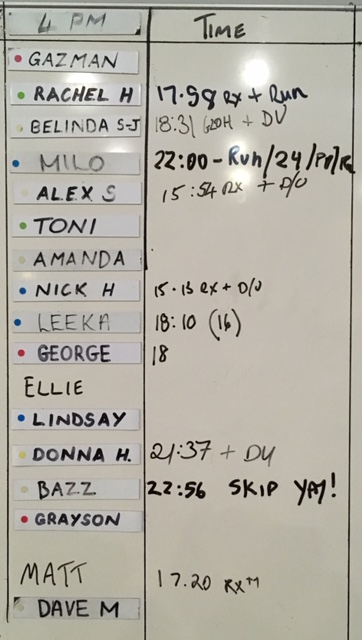 4 PM TIME
GAZMAN
RACHEL H 17.58 RX + Run
BELINDA S-J 18:31 + DU
MILO 22:00 - Run/24/
ALEX S 15:54 RX + D/U
TONI
AMANDA
NICK H 15.15 RX + D/U
LEEKA 18:10 (16)
GEORGE 18
ELLIE
LINDSAY
DONNA H. 21:37 + DU
BAZZ 22:56 SKIP YAY!
GRAYSON
MATT 17.20 RXM
DAVE M